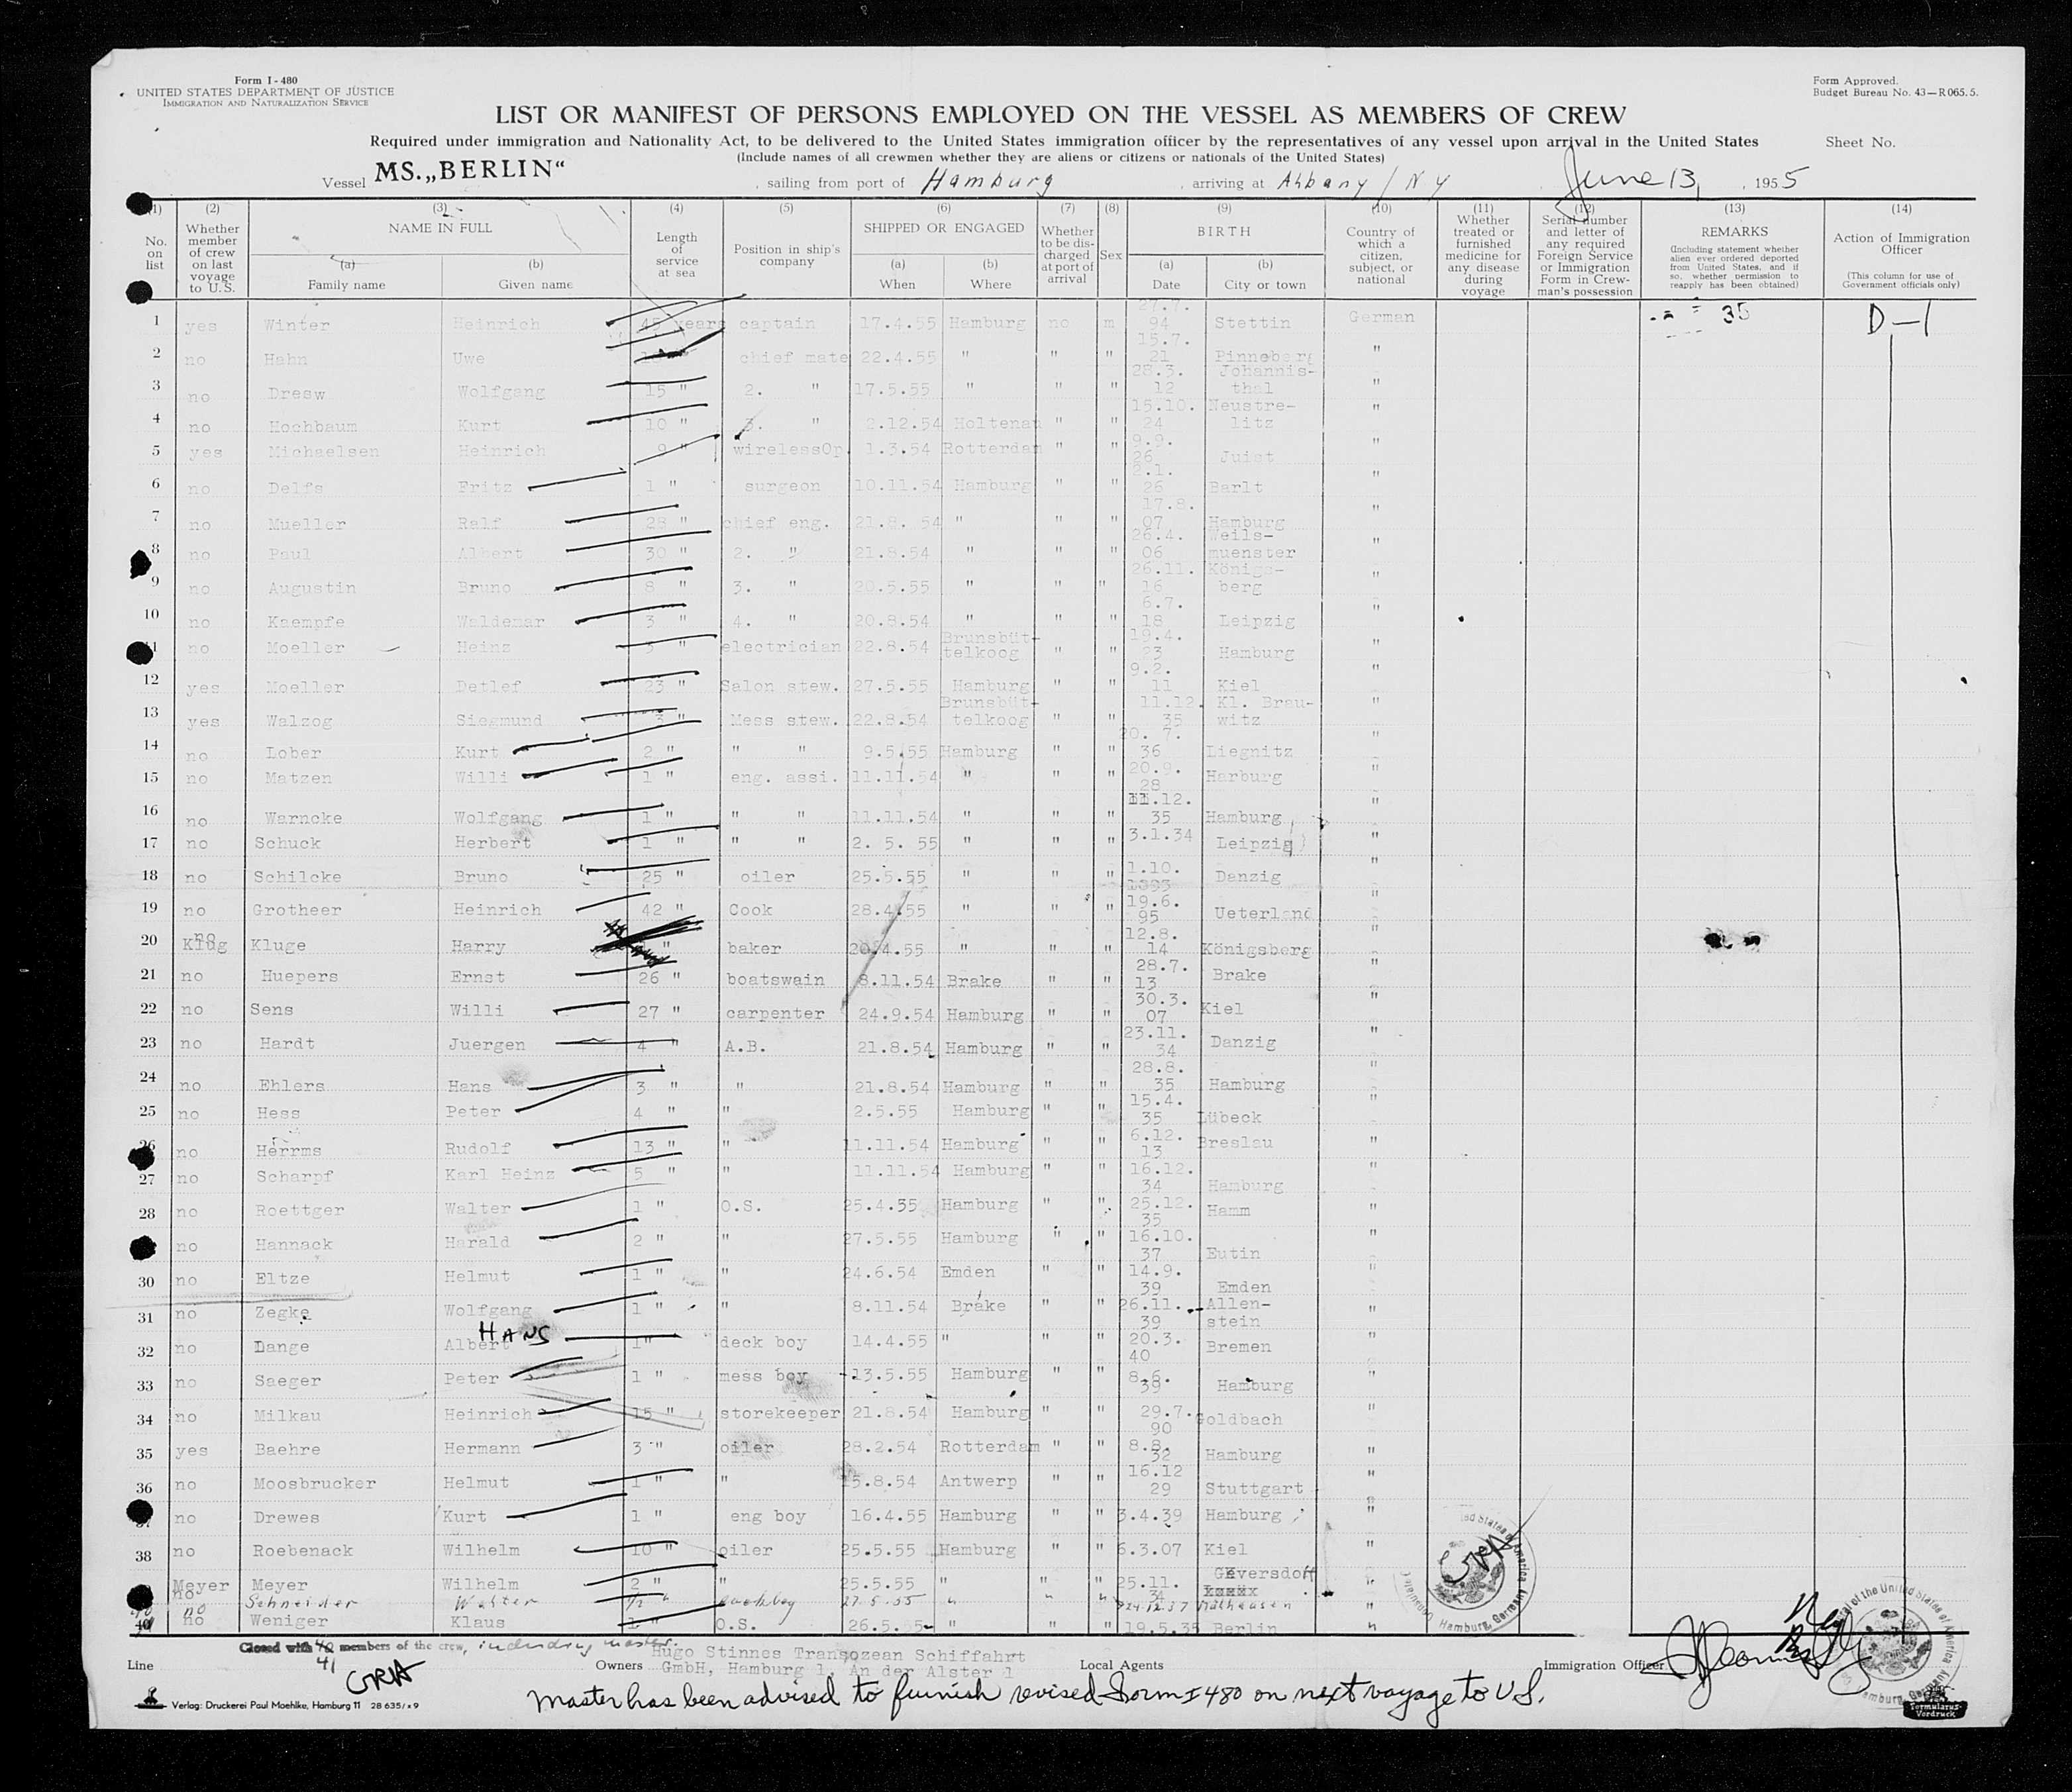 Form I-480
UNITED STATES DEPARTMENT OF JUSTICE
IMMIGRATION AND NATURALIZATION SERVICE
Form Approved.
Budget Bureau No. 43—R065.5.
LIST OR MANIFEST OF PERSONS EMPLOYED ON THE VESSEL AS MEMBERS OF CREW
Required under immigration and Nationality Act, to be delivered to the United States immigration officer by the representatives of any vessel upon arrival in the United States
Sheet No.
(Include names of all crewmen whether they are aliens or citizens or nationals of the United States)
Vessel MS. „BERLIN“ , sailing from port of Hamburg , arriving at Albany / NY , June 13, , 1955
(1) No. on list
(2) Whether member of crew on last voyage to U.S.
(3) NAME IN FULL
(a) Family name
(b) Given name
(4) Length of service at sea
(5) Position in ship's company
(6) SHIPPED OR ENGAGED
(a) When
(b) Where
(7) Whether to be discharged at port of arrival
(8) Sex
(9) BIRTH
(a) Date
(b) City or town
(10) Country of which a citizen, subject, or national
(11) Whether treated or furnished medicine for any disease during voyage
(12) Serial number and letter of any required Foreign Service or Immigration Form in Crewman's possession
(13) REMARKS
(Including statement whether alien ever ordered deported from United States, and if so, whether permission to reapply has been obtained)
(14) Action of Immigration Officer
(This column for use of Government officials only)
1 yes Winter Heinrich 45 years captain 17.4.55 Hamburg no m 27.7. 94 Stettin German 35 D—1
2 no Hahn Uwe " chief mate 22.4.55 " " " 15.7. 21 Pinneberg "
3 no Dresw Wolfgang 15 " 2. " 17.5.55 " " " 28.3. 12 Johannis-thal "
4 no Hochbaum Kurt 10 " 3. " 2.12.54 Holtenau " " 15.10. 24 Neustre-litz "
5 yes Michaelsen Heinrich 9 " wirelessOp. 1.3.54 Rotterdam " " 9.9. 26 Juist "
6 no Delfs Fritz 1 " surgeon 10.11.54 Hamburg " " 2.1. 26 Barlt "
7 no Mueller Ralf 28 " chief eng. 21.8. 54 " " " 17.8. 07 Hamburg "
8 no Paul Albert 30 " 2. " 21.8.54 " " " 26.4. 06 Weils-muenster "
9 no Augustin Bruno 8 " 3. " 20.5.55 " " " 26.11. 16 Königs-berg "
10 no Kaempfe Waldemar 3 " 4. " 20.8.54 " " " 6.7. 18 Leipzig "
11 no Moeller Heinz 3 " electrician 22.8.54 Brunsbüt-telkoog " " 19.4. 23 Hamburg "
12 yes Moeller Detlef 23 " Salon stew. 27.5.55 Hamburg " " 9.2. 11 Kiel "
13 yes Walzog Siegmund 3 " Mess stew. 22.8.54 Brunsbüt-telkoog " " 11.12. 35 Kl. Brau-witz "
14 no Lober Kurt 2 " " " 9.5.55 Hamburg " " 20. 7. 36 Liegnitz "
15 no Matzen Willi 1 " eng. assi. 11.11.54 " " " 20.9. 28 Harburg "
16 no Warncke Wolfgang 1 " " " 11.11.54 " " " 11.12. 35 Hamburg "
17 no Schuck Herbert 1 " " " 2. 5. 55 " " " 3.1.34 Leipzig "
18 no Schilcke Bruno 25 " oiler 25.5.55 " " " 1.10. 1893 Danzig "
19 no Grotheer Heinrich 42 " Cook 28.4.55 " " " 19.6. 95 Ueterland "
20 no Klug Kluge Harry " baker 20.4.55 " " " 12.8. 14 Königsberg "
21 no Huepers Ernst 26 " boatswain 8.11.54 Brake " " 28.7. 13 Brake "
22 no Sens Willi 27 " carpenter 24.9.54 Hamburg " " 30.3. 07 Kiel "
23 no Hardt Juergen 4 " A.B. 21.8.54 Hamburg " " 23.11. 34 Danzig "
24 no Ehlers Hans 3 " " 21.8.54 Hamburg " " 28.8. 35 Hamburg "
25 no Hess Peter 4 " " 2.5.55 Hamburg " " 15.4. 35 Lübeck "
26 no Herrms Rudolf 13 " " 11.11.54 Hamburg " " 6.12. 13 Breslau "
27 no Scharpf Karl Heinz 5 " " 11.11.54 Hamburg " " 16.12. 34 Hamburg "
28 no Roettger Walter 1 " O.S. 25.4.35 Hamburg " " 25.12. 35 Hamm "
no Hannack Harald 2 " " 27.5.55 Hamburg " " 16.10. 37 Eutin "
30 no Eltze Helmut 1 " " 24.6.54 Emden " " 14.9. 39 Emden "
31 no Zegke Wolfgang 1 " " 8.11.54 Brake " " 26.11. 39 Allen-stein "
32 no Dange Albert HANS 1 " deck boy 14.4.55 " " " 20.3. 40 Bremen "
33 no Saeger Peter 1 " mess boy 13.5.55 Hamburg " " 8.6. 39 Hamburg "
34 no Milkau Heinrich 15 " storekeeper 21.8.54 Hamburg " " 29.7. 90 Goldbach "
35 yes Baehre Hermann 3 " oiler 28.2.54 Rotterdam " " 8.8. 32 Hamburg "
36 no Moosbrucker Helmut 1 " " 15.8.54 Antwerp " " 16.12 29 Stuttgart "
37. no Drewes Kurt 1 " eng boy 16.4.55 Hamburg " " 3.4.39 Hamburg "
38 no Roebenack Wilhelm 10 " oiler 25.5.55 Hamburg " " 6.3.07 Kiel "
Meyer no Meyer Wilhelm 2 " " 25.5.55 " " " 25.11. 34 Geversdorf "
40 no Schneider Walter 1/2 " cookboy 27.5.55 " " " 24.12.37 Mülhausen "
no Weniger Klaus 1 " O.S. 26.5.55 " " " 19.5.35 Berlin "
Closed with 40 41 members of the crew, including master.
GRIA
Line
Owners Hugo Stinnes Transozean Schiffahrt
GmbH, Hamburg 1, An der Alster 1
Local Agents
Immigration Officer
Master has been advised to furnish revised Form I 480 on next voyage to U S.
Verlag: Druckerei Paul Moehlke, Hamburg 11 28 635/x9
Formulares-Vordruck